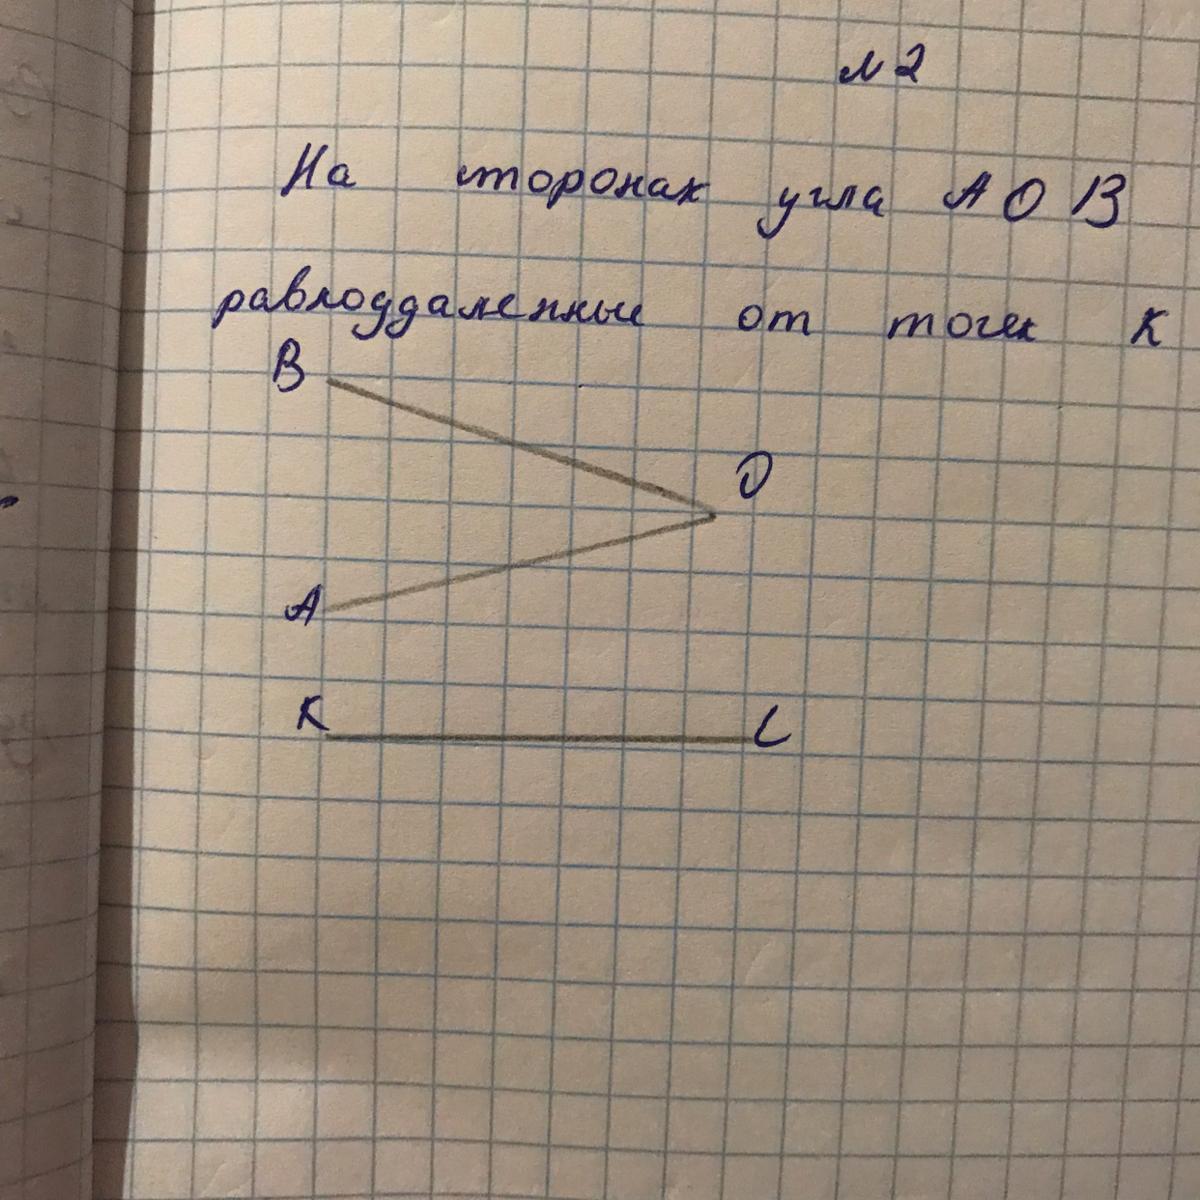 №2
На сторонах угла АОВ
равноудаленные от точек К
В
О
А
К
L